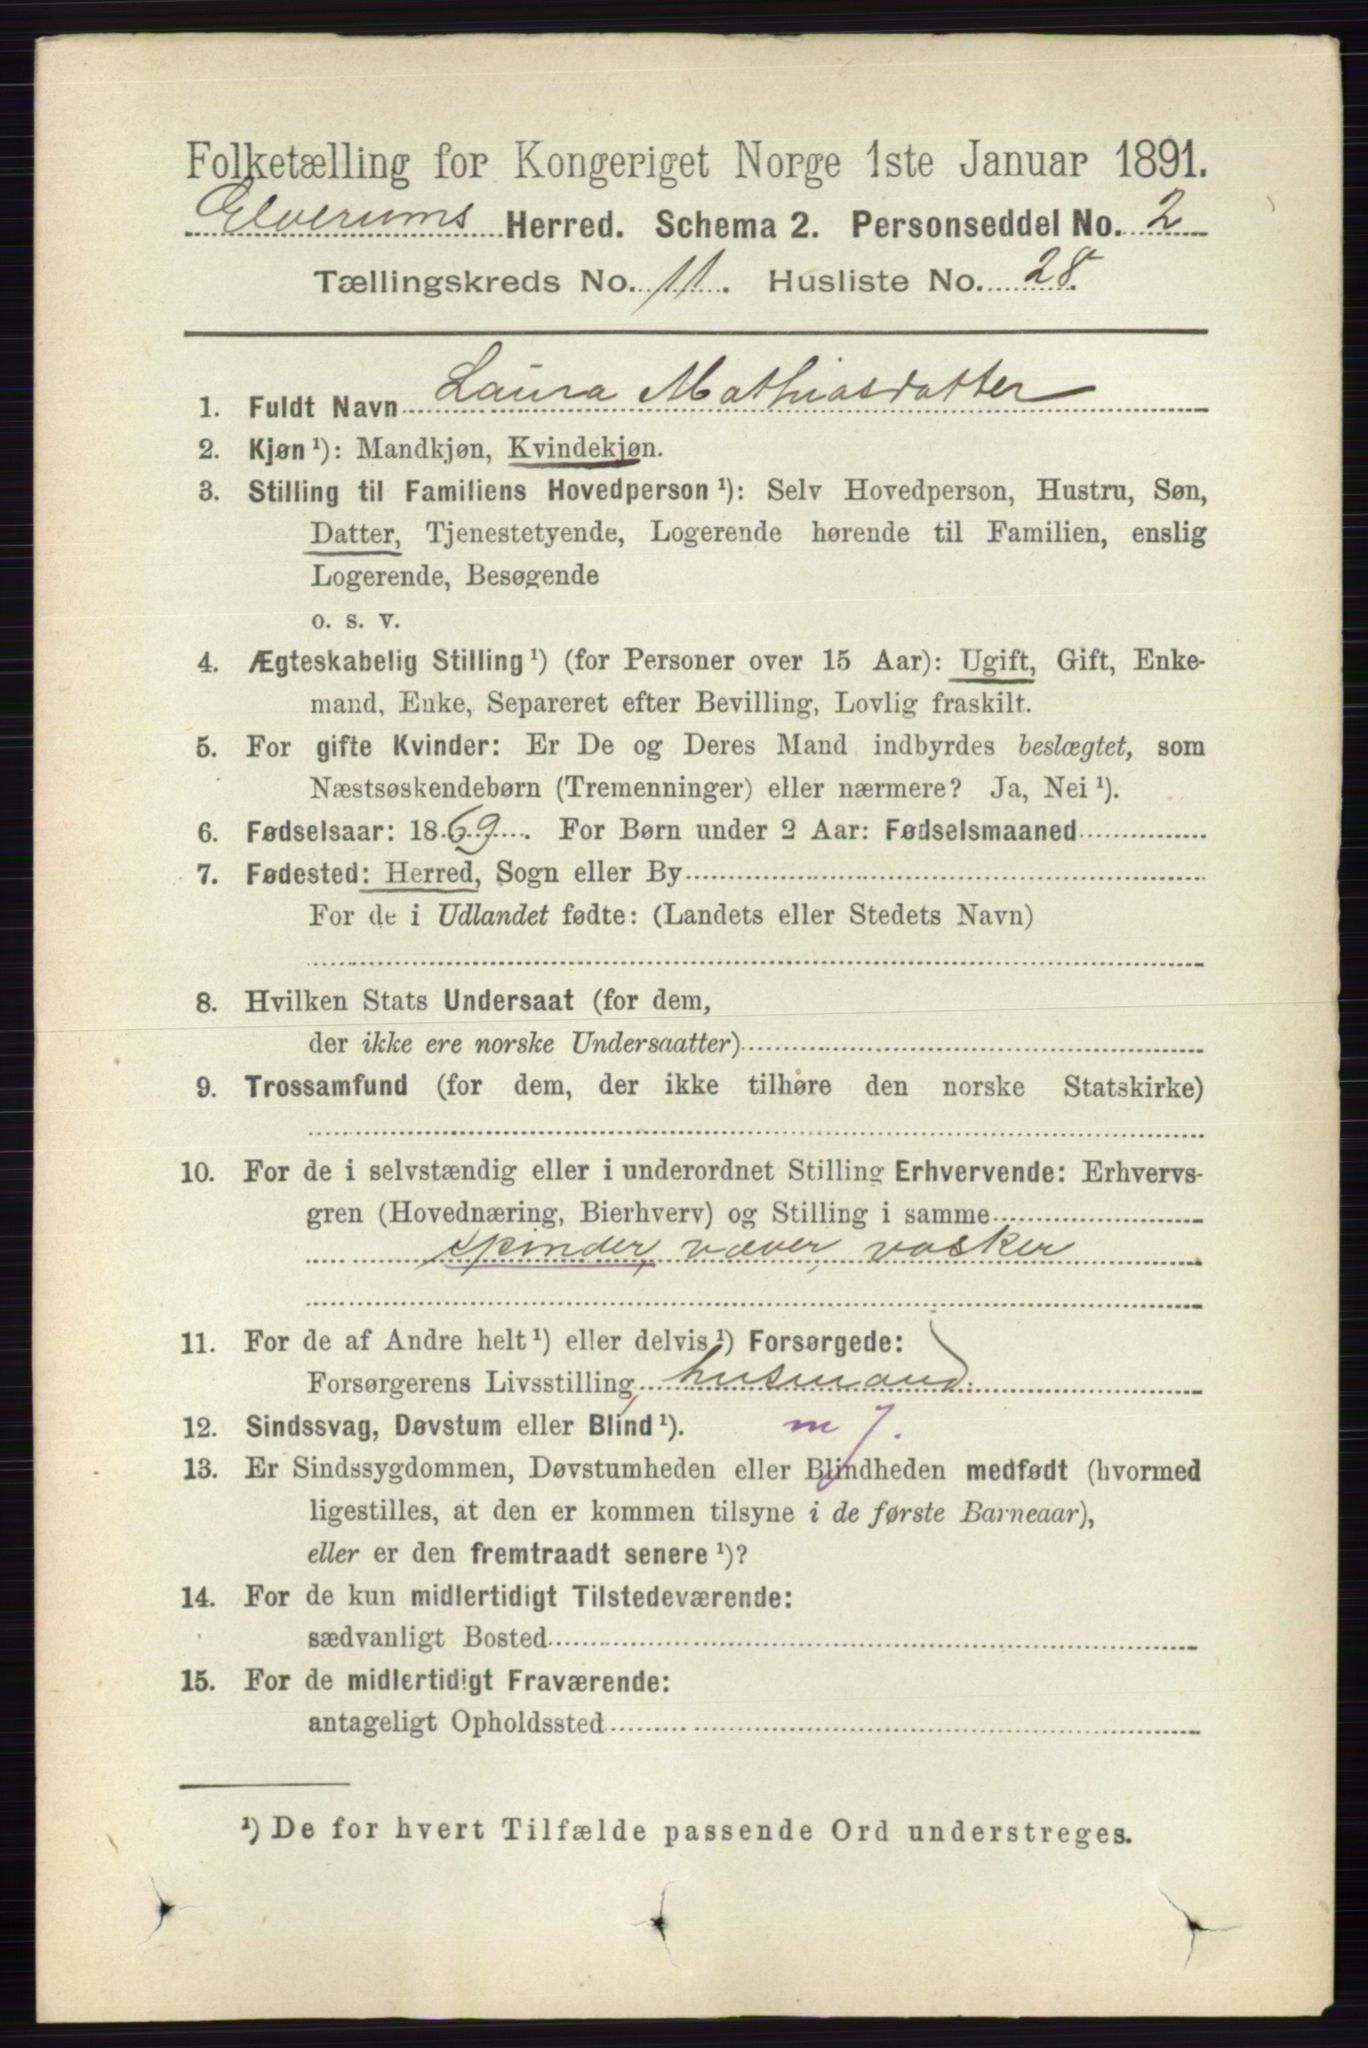 Folketælling for Kongeriget Norge 1ste Januar 1891.
Elverums Herred. Schema 2. Personseddel No. 2
Tællingskreds No. 11. Husliste No. 28.
1. Fuldt Navn Laura Mathiasdatter
2. Kjøn¹): Mandkjøn, Kvindekjøn.
3. Stilling til Familiens Hovedperson¹): Selv Hovedperson, Hustru, Søn,
Datter, Tjenestetyende, Logerende hørende til Familien, enslig
Logerende, Besøgende
o. s. v.
4. Ægteskabelig Stilling¹) (for Personer over 15 Aar): Ugift, Gift, Enke-
mand, Enke, Separeret efter Bevilling, Lovlig fraskilt.
5. For gifte Kvinder: Er De og Deres Mand indbyrdes beslægtet, som
Næstsøskendebørn (Tremenninger) eller nærmere? Ja, Nei¹).
6. Fødselsaar: 1869. For Børn under 2 Aar: Fødselsmaaned
7. Fødested: Herred, Sogn eller By
For de i Udlandet fødte: (Landets eller Stedets Navn)
8. Hvilken Stats Undersaat (for dem,
der ikke ere norske Undersaatter)
9. Trossamfund (for dem, der ikke tilhøre den norske Statskirke)
10. For de i selvstændig eller i underordnet Stilling Erhvervende: Erhvervs-
gren (Hovednæring, Bierhverv) og Stilling i samme
spinder, væver, vasker
11. For de af Andre helt¹) eller delvis¹) Forsørgede:
Forsørgerens Livsstilling husmand
12. Sindssvag, Døvstum eller Blind¹). m j.
13. Er Sindssygdommen, Døvstumheden eller Blindheden medfødt (hvormed
ligestilles, at den er kommen tilsyne i de første Barneaar),
eller er den fremtraadt senere¹)?
14. For de kun midlertidigt Tilstedeværende:
sædvanligt Bosted
15. For de midlertidigt Fraværende:
antageligt Opholdssted
¹) De for hvert Tilfælde passende Ord understreges.